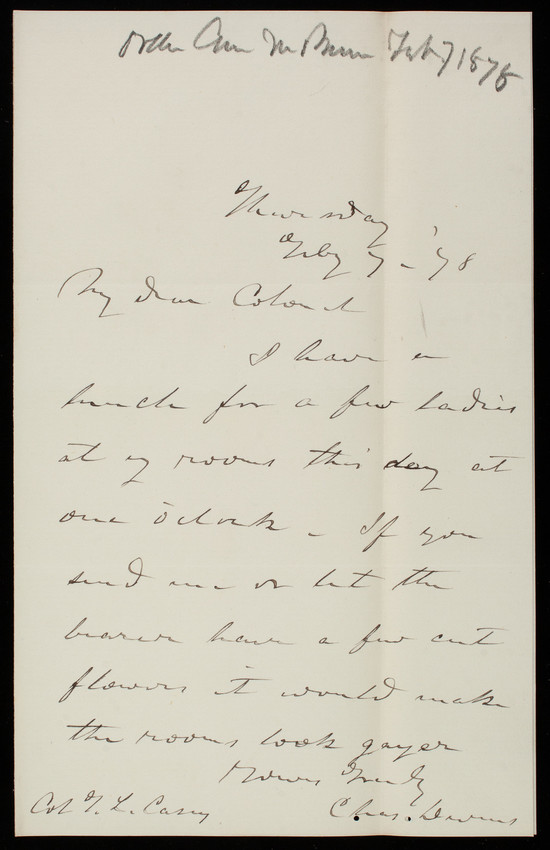 Feby 7 1878
Thursday
Feby 7 - '78
My dear Colonel
I have a
lunch for a few ladies
at my rooms this day at
one o'clock - If you
send me or let the
bearer have a few cut
flowers it would make
the rooms look gayer
Yours truly
Chas. Devens
Col T. L. Casey